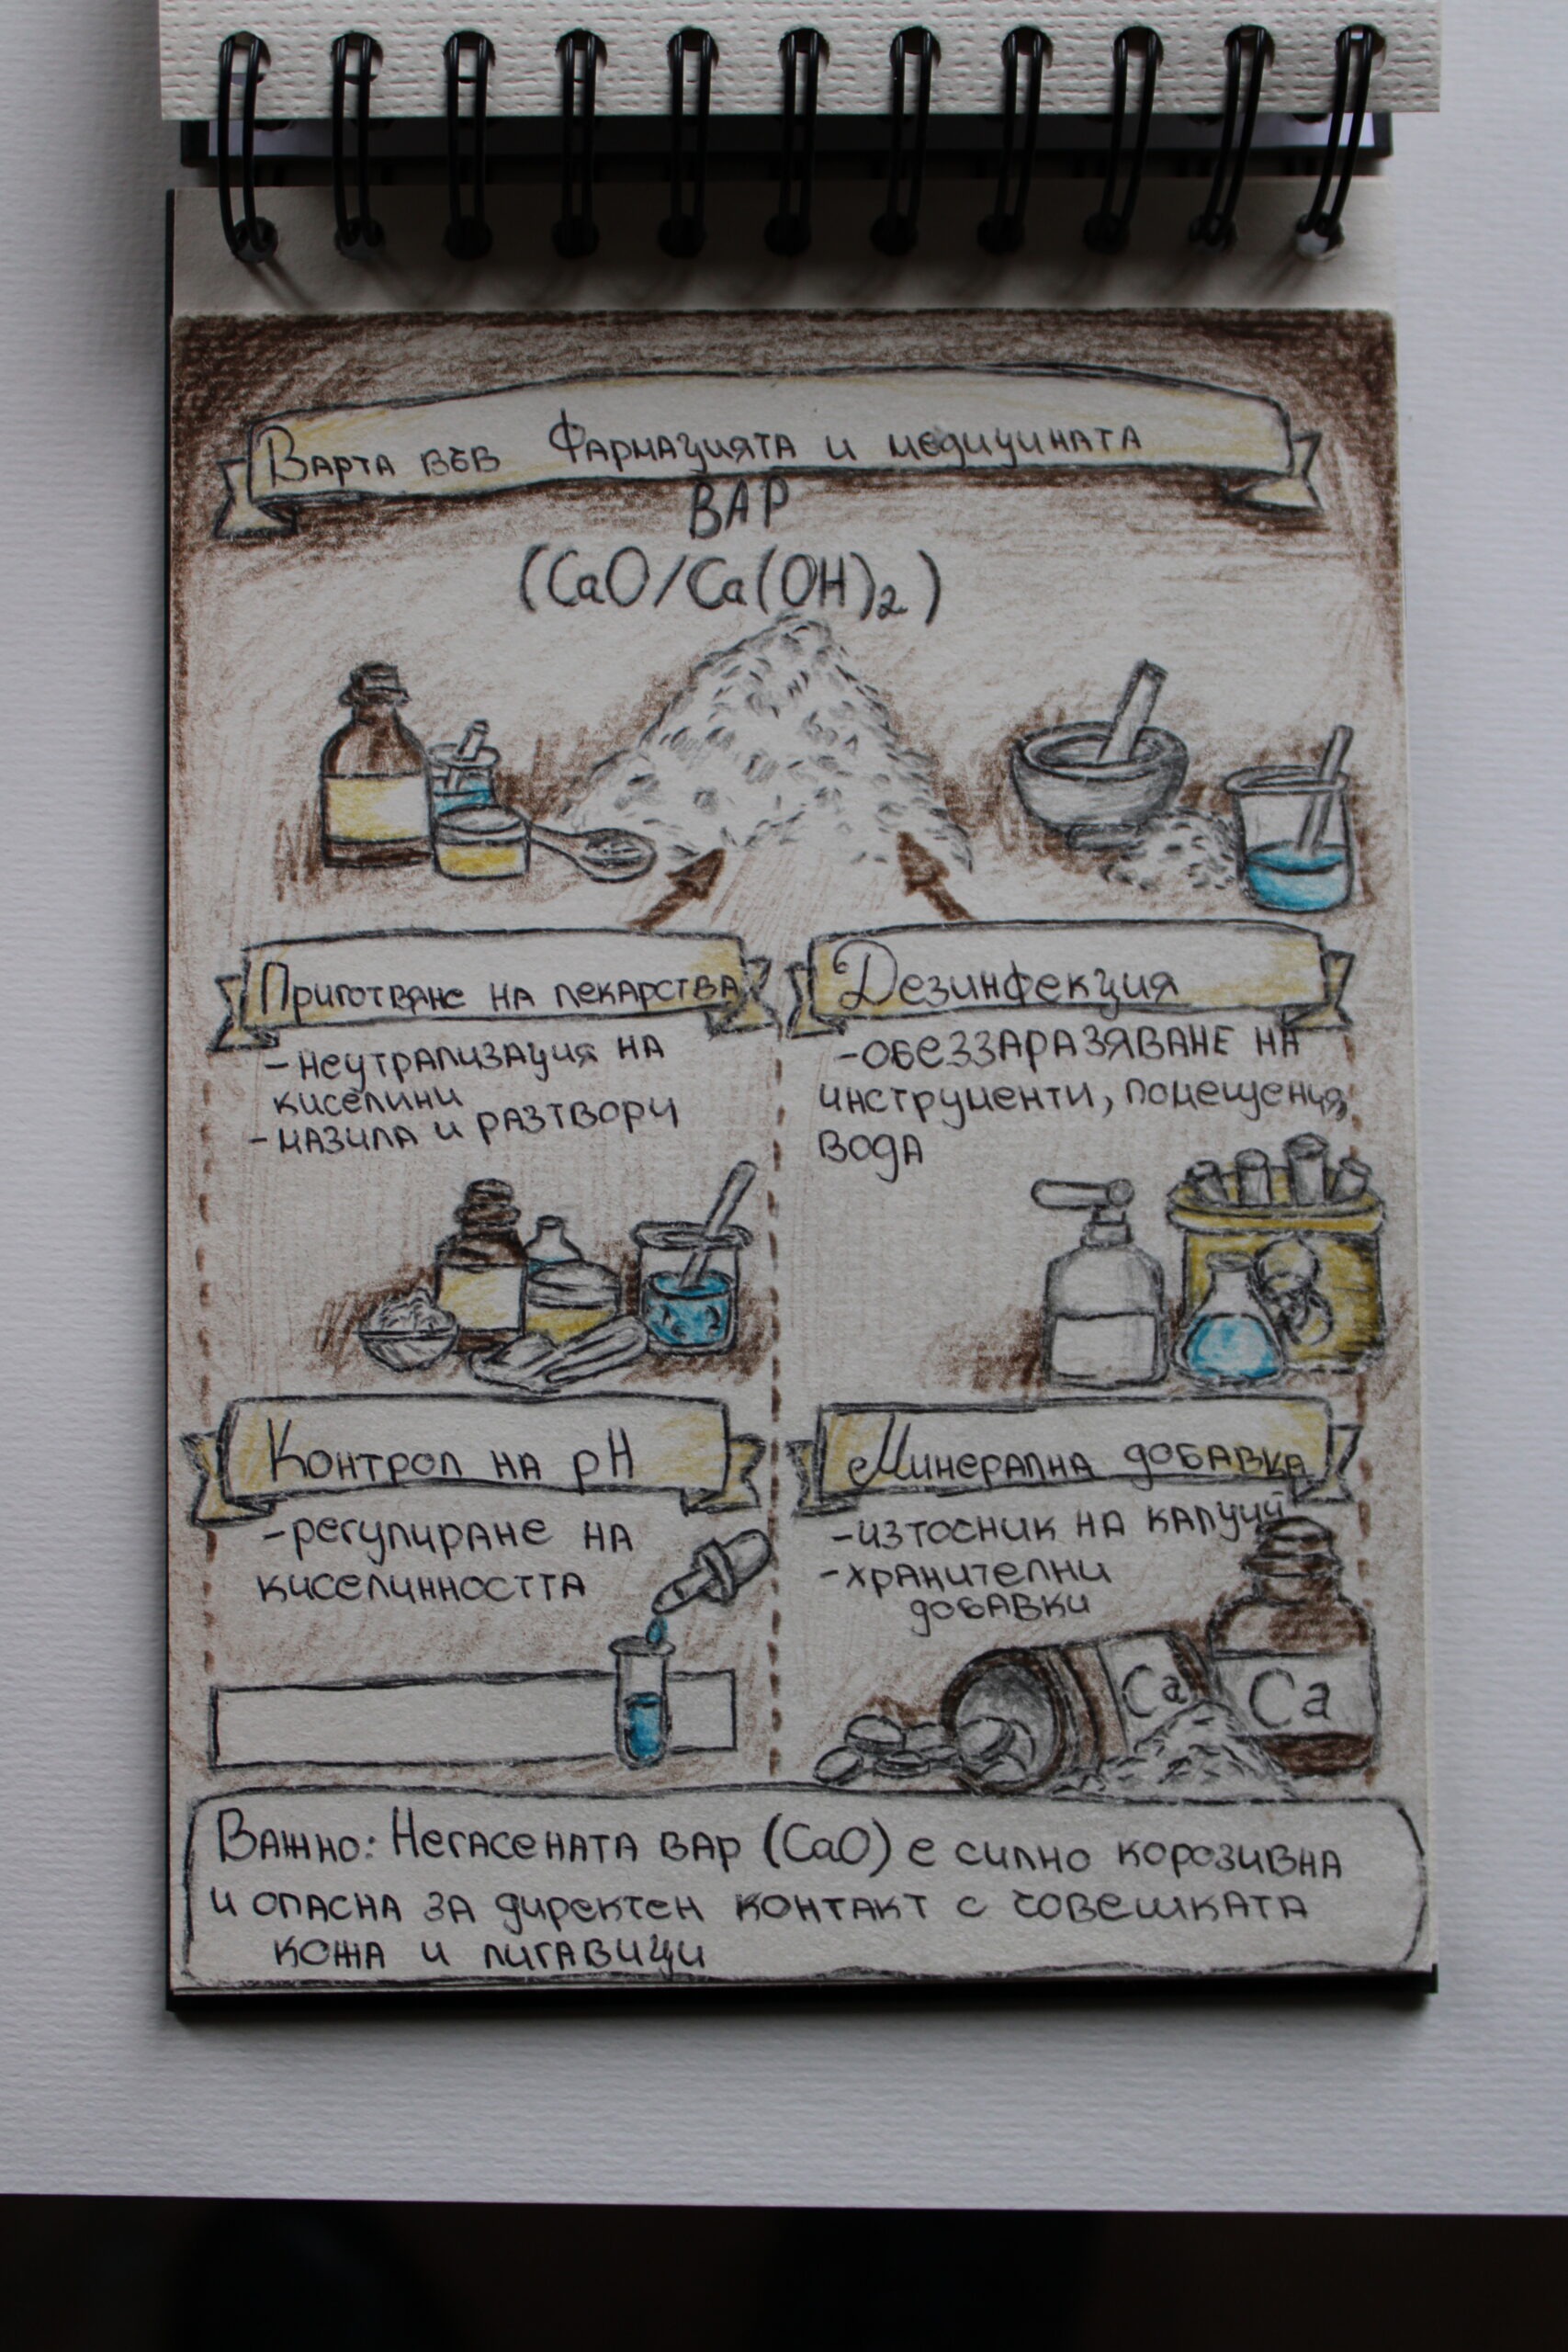 Варта във Фармацията и медицината
ВАР
(CaO/Ca(OH)₂)
Приготвяне на лекарства
- неутрализация на
киселини
- мазила и разтвори
Дезинфекция
- обеззаразяване на
инструменти, помещения,
вода
Контрол на pH
- регулиране на
киселинността
Минерална добавка
- източник на калций
- хранителни
добавки
Ca
Ca
Важно: Негасената вар (CaO) е силно корозивна
и опасна за директен контакт с човешката
кожа и лигавици